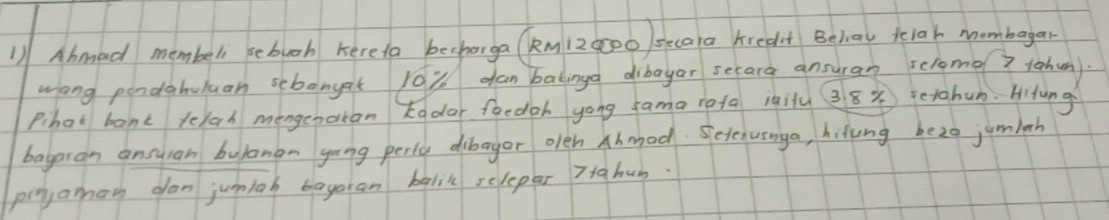 1) Ahmad membeli sebuah kereta berharga (RM12000) secara kredit Beliau telah membayar
wang pendahuluan sebanyak 10% dan bakinya dibayar secara ansuran selama 7 tahun).
Pihak bank telah mengenakan kadar faedah yang sama rata iaitu 3.8% setahun. Hitung
bayaran ansuran bulanan yang perlu dibayar oleh Ahmad. Seterusnya, hitung beza jumlah
pinjaman dan jumlah bayaran balik selepas 7 tahun.